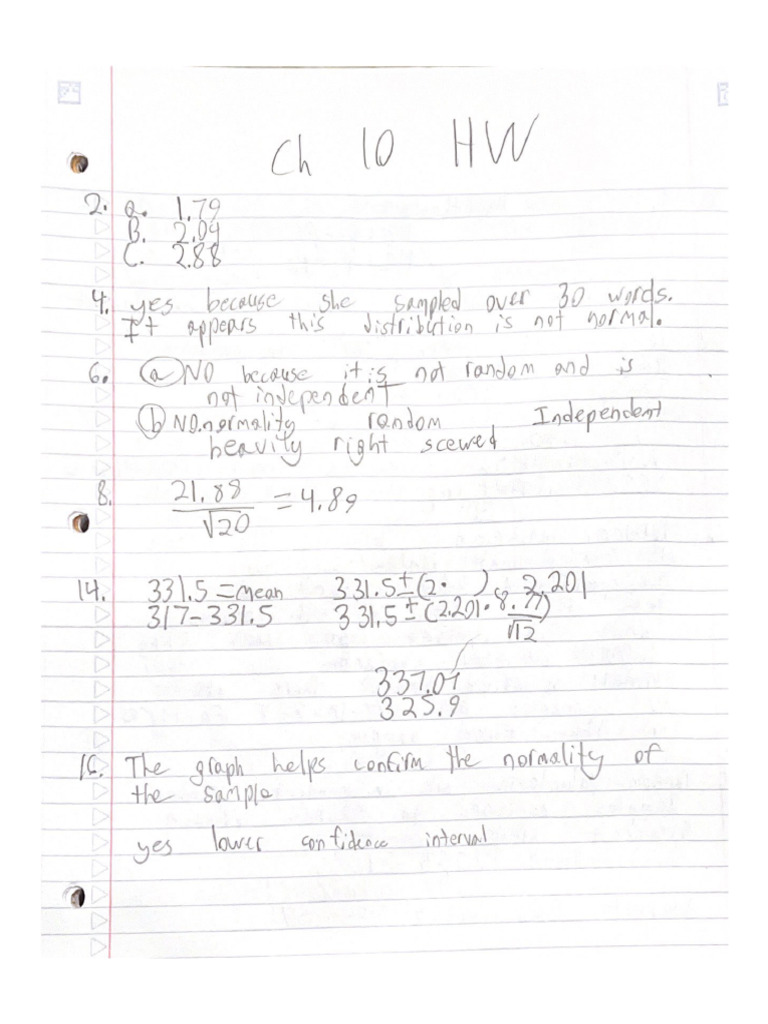 Ch 10 HW
2. a. 1.79
B. 2.09
C. 2.88
4. yes because she sampled over 30 words.
It appears this distribution is not normal.
6. (a) NO because it is not random and is
not independent
(b) NO. normality random Independent
heavily right scewed
8. 21.88/√20 = 4.89
14. 331.5 = mean 331.5 ± (2. ) 2.201
317-331.5 331.5 ± (2.201 · 8.77/√12)
337.07
325.9
16. The graph helps confirm the normality of
the sample
yes lower confidence interval